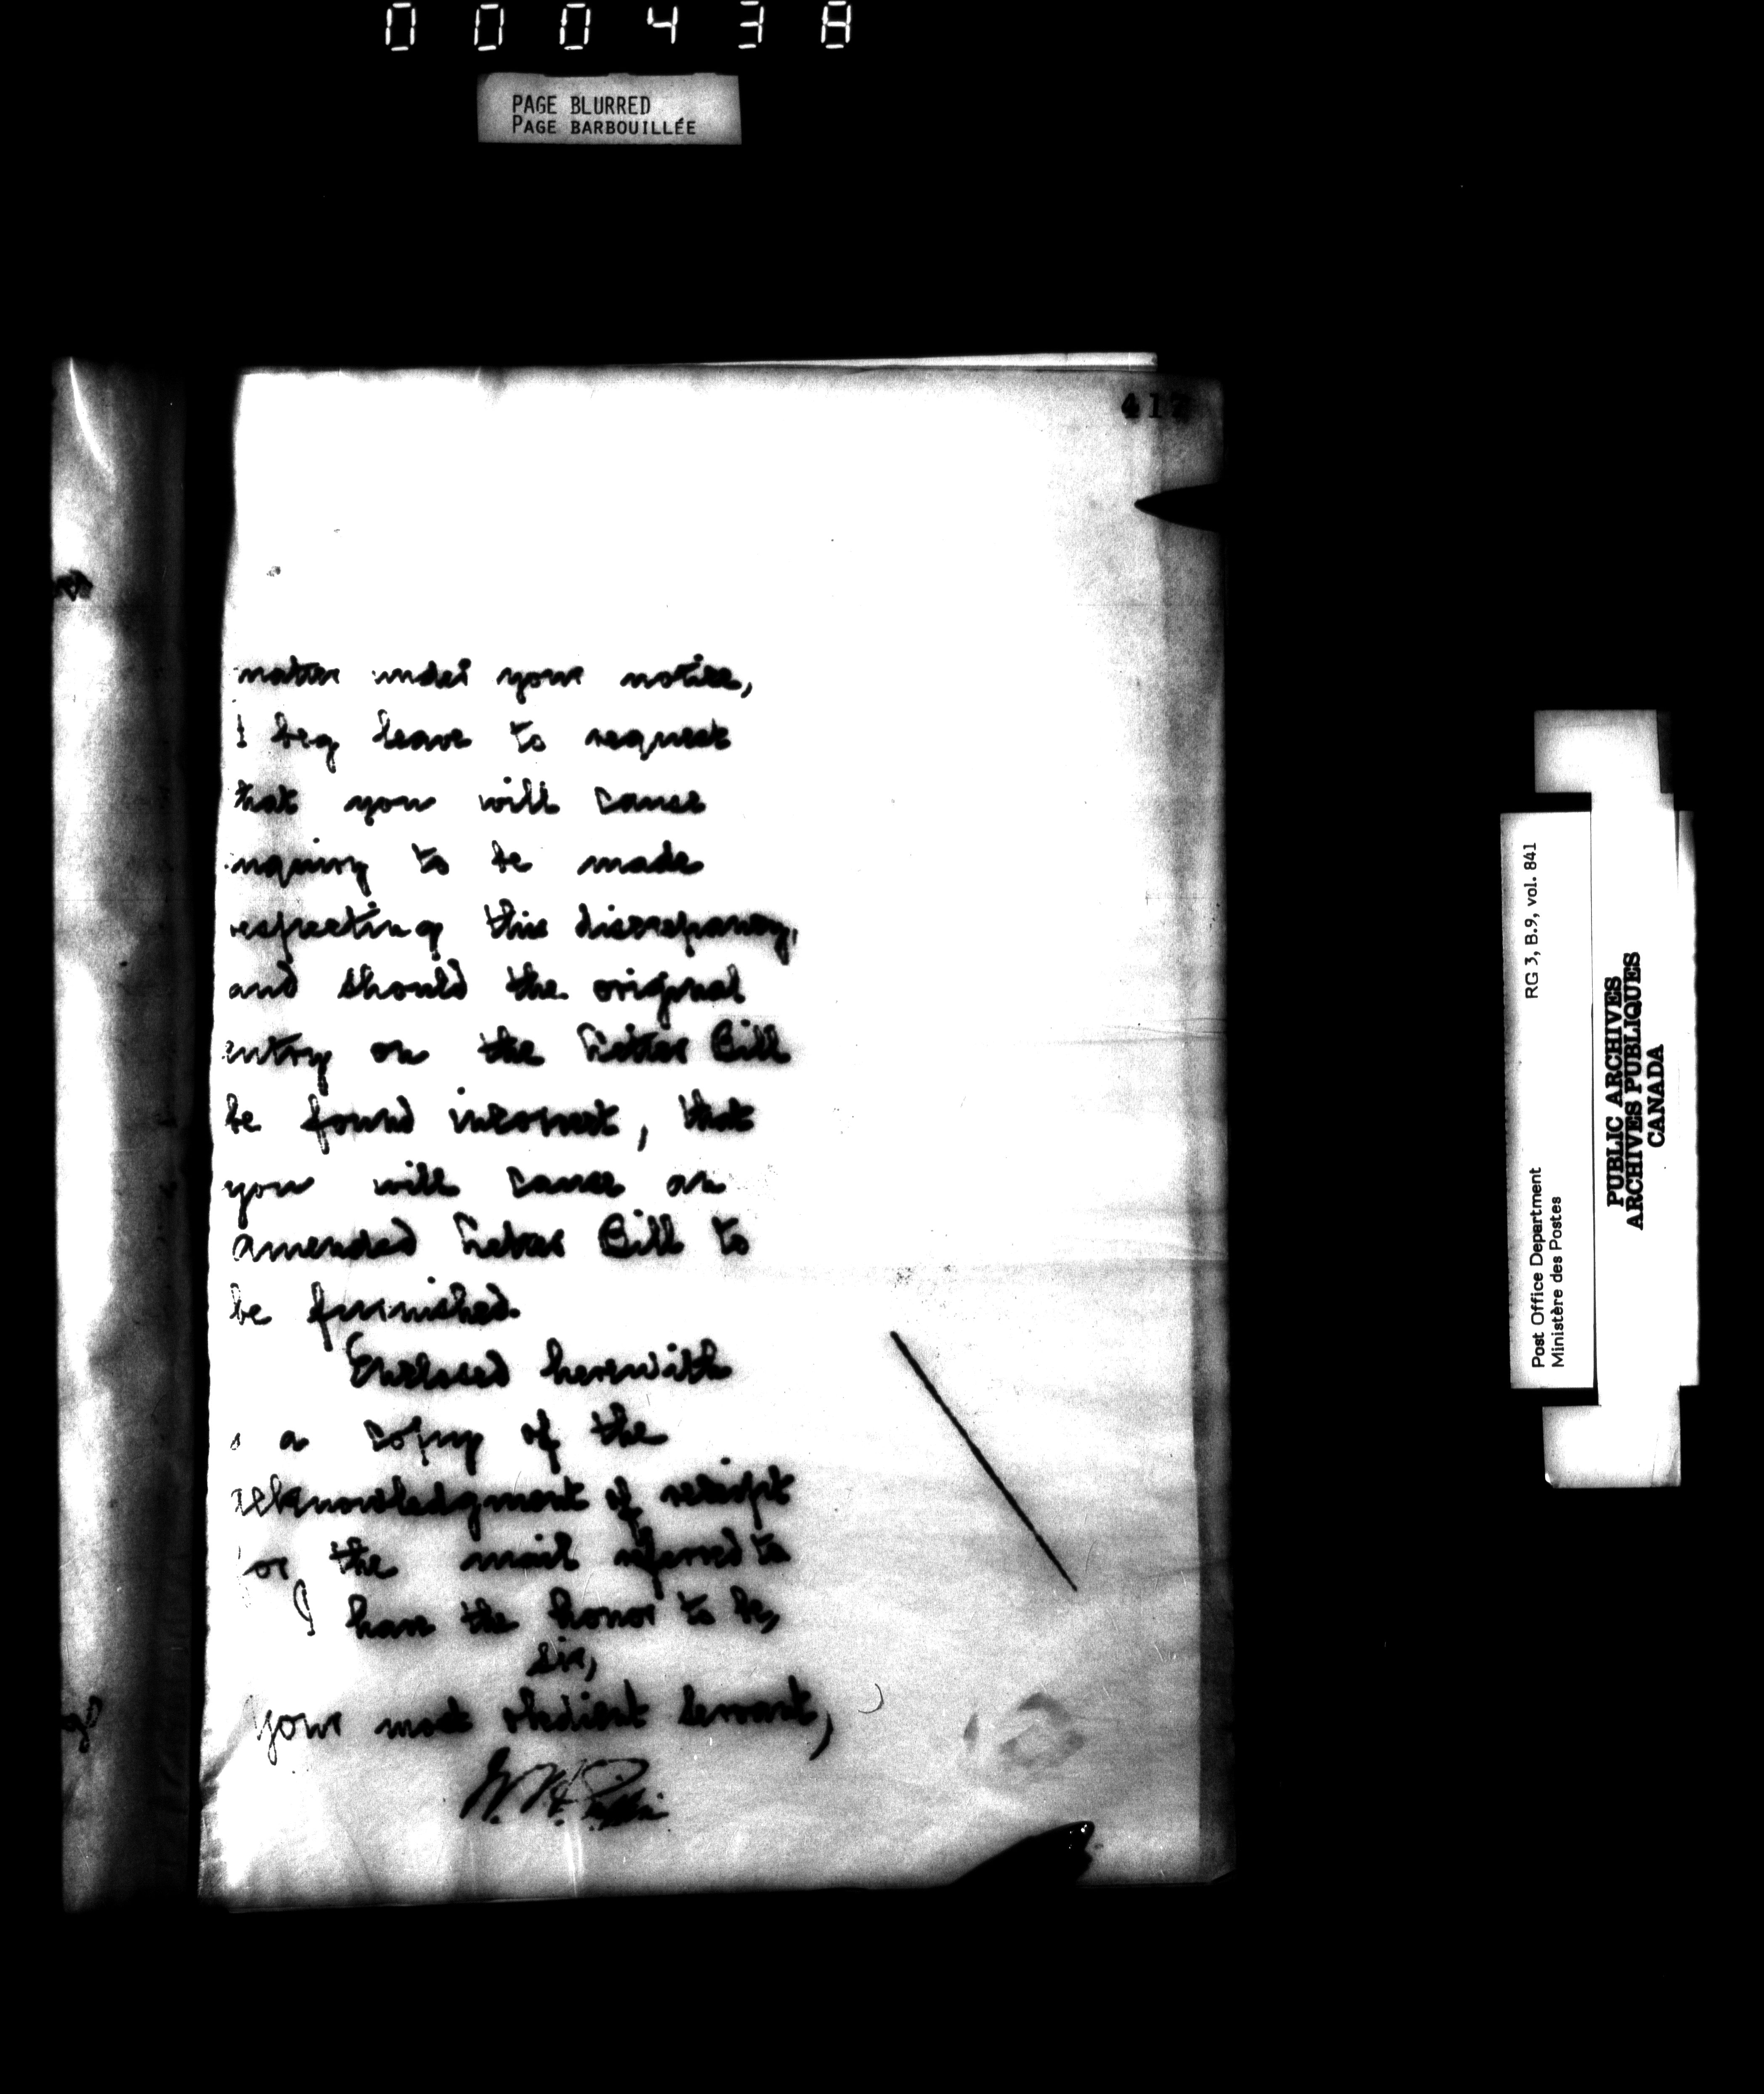 000438
PAGE BLURRED
PAGE BARBOUILLÉE
417
matter under your notice,
I beg leave to request
that you will cause
inquiry to be made
respecting this discrepancy,
and should the original
entry on the Letter Bill
be found incorrect, that
you will cause an
amended Letter Bill to
be furnished.
Enclosed herewith
is a copy of the
acknowledgment of receipt
for the mail referred to
I have the honor to be,
Sir,
Your most obedient Servant,
RG 3, B.9, vol. 841
Post Office Department
Ministère des Postes
PUBLIC ARCHIVES
ARCHIVES PUBLIQUES
CANADA